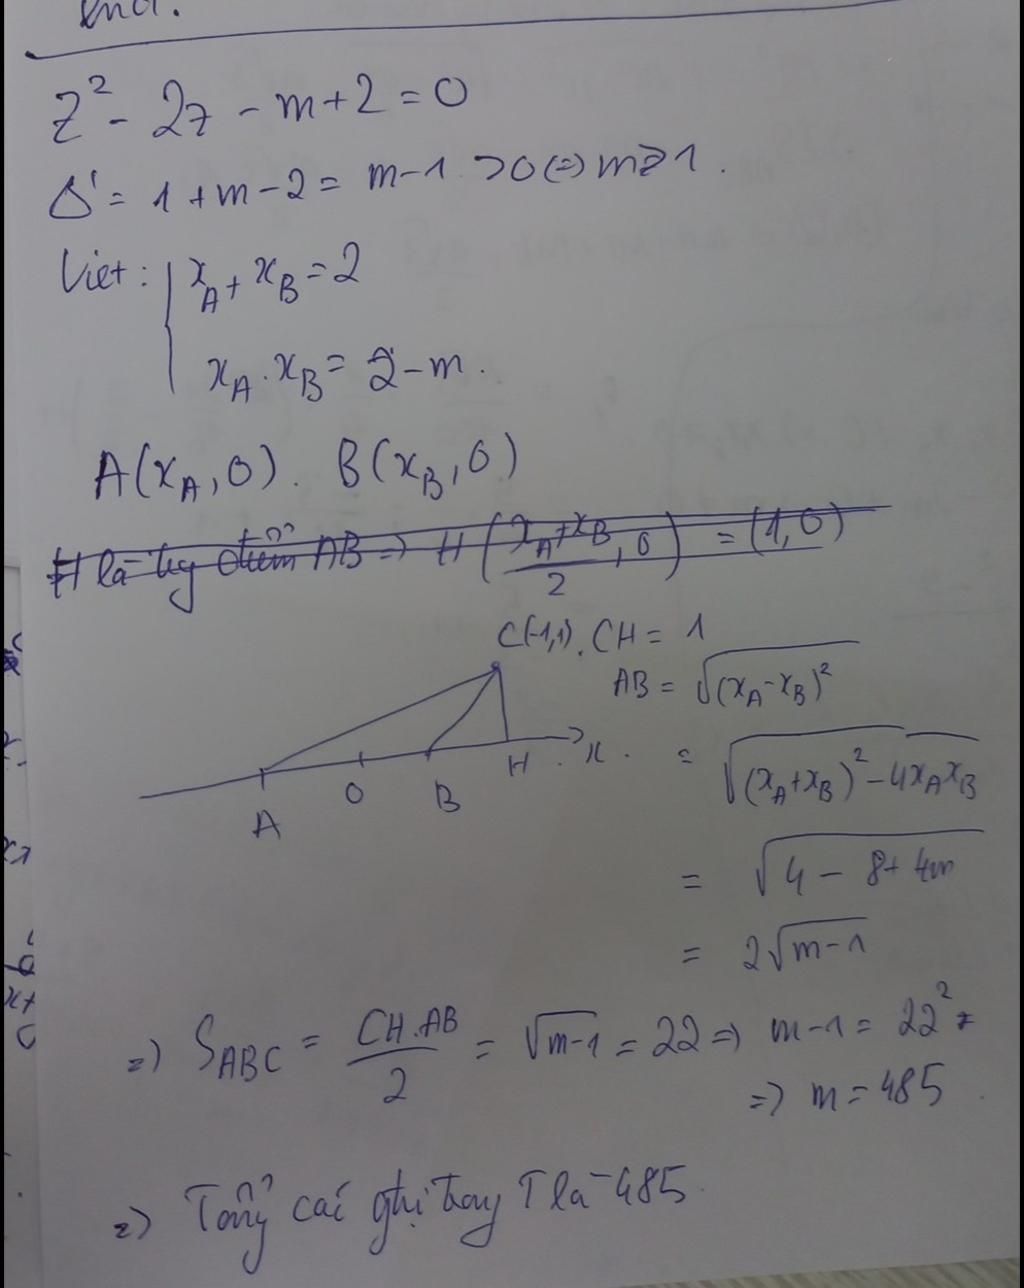 Z² - 2z - m + 2 = 0
Δ' = 1 + m - 2 = m - 1 > 0 (=) m > 1.
Viet: { x_A + x_B = 2
x_A . x_B = 2 - m.
A(x_A, 0). B(x_B, 0)
H là trg điểm AB => H((x_A + x_B)/2, 0) = (1, 0)
C(-1,1). CH = 1
AB = √(x_A - x_B)²
= √(x_A + x_B)² - 4x_A x_B
A O B H x.
= √4 - 8 + 4m
= 2√m-1
=) S_ABC = CH.AB/2 = √m-1 = 22 =) m - 1 = 22²
=) m = 485.
=) Tổng các gtrị T là 485.